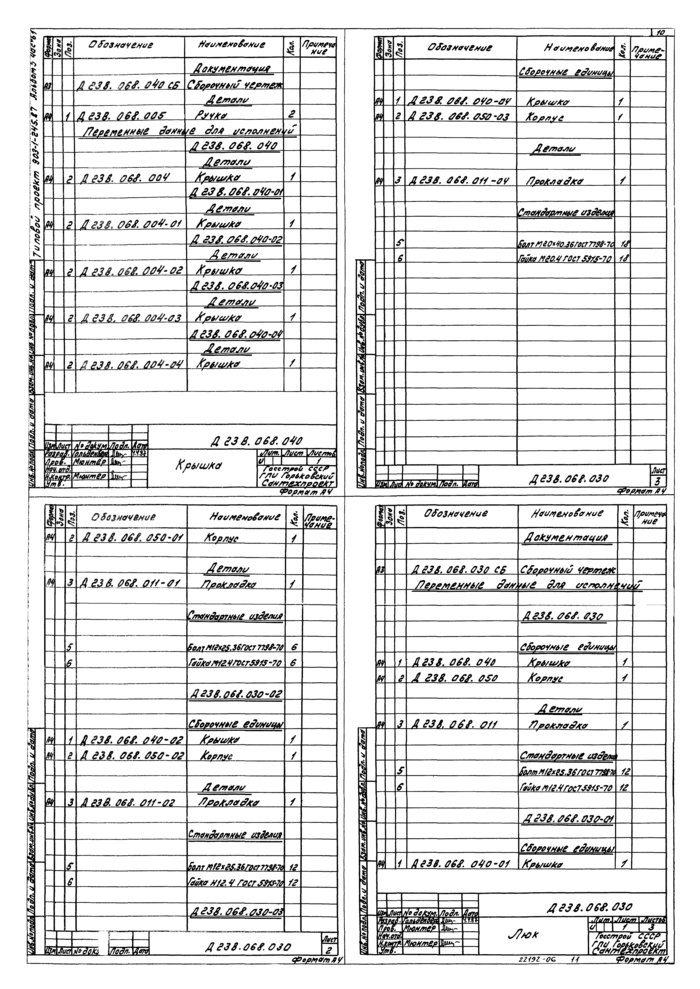 Типовой проект 903-1-245.87 Альбом 5 часть 1
10
Формат Зона Поз. Обозначение Наименование Кол. Примечание
Документация
А3 Д 23В.068.040 СБ Сборочный чертеж
Детали
А4 1 Д 23В.068.005 Ручка 2
Переменные данные для исполнений
Д 23В.068.040
Детали
А4 2 Д 23В.068.004 Крышка 1
Д 23В.068.040-01
Детали
А4 2 Д 23В.068.004-01 Крышка 1
Д 23В.068.040-02
Детали
А4 2 Д 23В.068.004-02 Крышка 1
Д 23В.068.040-03
Детали
А4 2 Д 23В.068.004-03 Крышка 1
Д 23В.068.040-04
Детали
А4 2 Д 23В.068.004-04 Крышка 1
Инв.№подл. Подп. и дата Взам.инв.№ Инв.№дубл. Подп. и дата
Д 23В.068.040
Изм Лист № докум. Подп. Дата
Разраб.
Пров. Мюнтер
Нач.отд.
Н.контр. Мюнтер
Утв.
Крышка
Лит. Лист Листов
И 1
Госстрой СССР
ГПИ Горьковский
Сантехпроект
Формат А4
Формат Зона Поз. Обозначение Наименование Кол. Примечание
Сборочные единицы
А4 1 Д 23В.068.040-04 Крышка 1
А4 2 Д 23В.068.050-03 Корпус 1
Детали
А4 3 Д 23В.068.011-04 Прокладка 1
Стандартные изделия
5 Болт М20×40.36 ГОСТ 7798-70 18
6 Гайка М20.4 ГОСТ 5915-70 18
Инв.№подл. Подп. и дата Взам.инв.№ Инв.№дубл. Подп. и дата
Изм Лист № докум. Подп. Дата
Д 23В.068.030
Лист
3
Формат А4
Формат Зона Поз. Обозначение Наименование Кол. Примечание
А4 2 Д 23В.068.050-01 Корпус 1
Детали
А4 3 Д 23В.068.011-01 Прокладка 1
Стандартные изделия
5 Болт М12×25.36 ГОСТ 7798-70 6
6 Гайка М12.4 ГОСТ 5915-70 6
Д 23В.068.030-02
Сборочные единицы
А4 1 Д 23В.068.040-02 Крышка 1
А4 2 Д 23В.068.050-02 Корпус 1
Детали
А4 3 Д 23В.068.011-02 Прокладка 1
Стандартные изделия
5 Болт М12×25.36 ГОСТ 7798-70 12
6 Гайка М12.4 ГОСТ 5915-70 12
Д 23В.068.030-03
Инв.№подл. Подп. и дата Взам.инв.№ Инв.№дубл. Подп. и дата
Изм Лист № док. Подп. Дата
Д 23В.068.030
Лист
2
Формат А4
Формат Зона Поз. Обозначение Наименование Кол. Примечание
Документация
А3 Д 23В.068.030 СБ Сборочный чертеж
Переменные данные для исполнений
Д 23В.068.030
Сборочные единицы
А4 1 Д 23В.068.040 Крышка 1
А4 2 Д 23В.068.050 Корпус 1
Детали
А4 3 Д 23В.068.011 Прокладка 1
Стандартные изделия
5 Болт М12×25.36 ГОСТ 7798-70 12
6 Гайка М12.4 ГОСТ 5915-70 12
Д 23В.068.030-01
Сборочные единицы
А4 1 Д 23В.068.040-01 Крышка 1
Инв.№подл. Подп. и дата Взам.инв.№ Инв.№дубл. Подп. и дата
Д 23В.068.030
Изм Лист № докум. Подп. Дата
Разраб.
Пров. Мюнтер
Нач.отд.
Н.контр. Мюнтер
Утв.
Люк
Лит. Лист Листов
И 1 3
Госстрой СССР
ГПИ Горьковский
Сантехпроект
22192-06 11 Формат А4